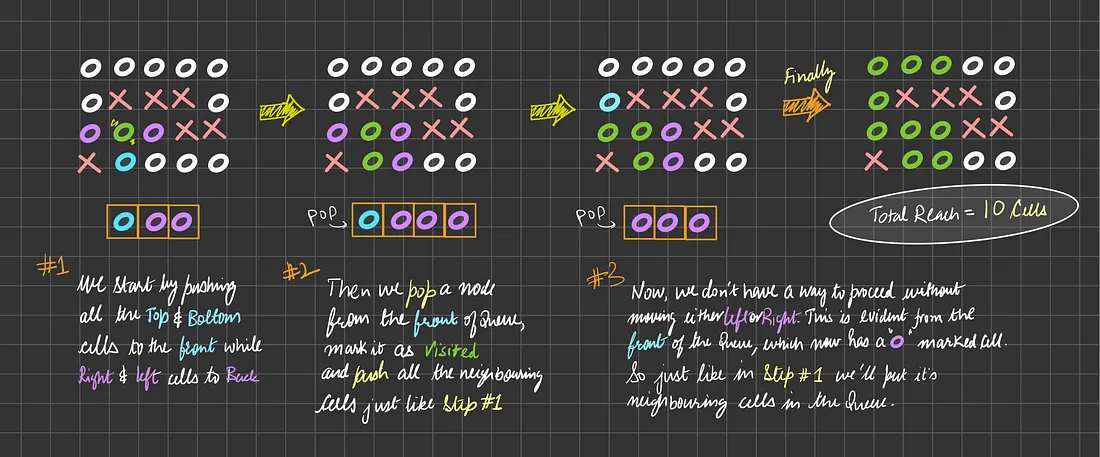 Finally
POP
POP
Total Reach = 10 Cells
#1
We start by pushing
all the Top & Bottom
cells to the front while
Right & left cells to Back
#2
Then we pop a node
from the front of Queue,
mark it as Visited
and push all the neighbouring
cells just like Step #1
#3
Now, we don't have a way to proceed without
moving either left or Right. This is evident from the
front of the Queue, which now has a "O" marked cell.
So just like in Step #1 we'll put it's
neighbouring cells in the Queue.